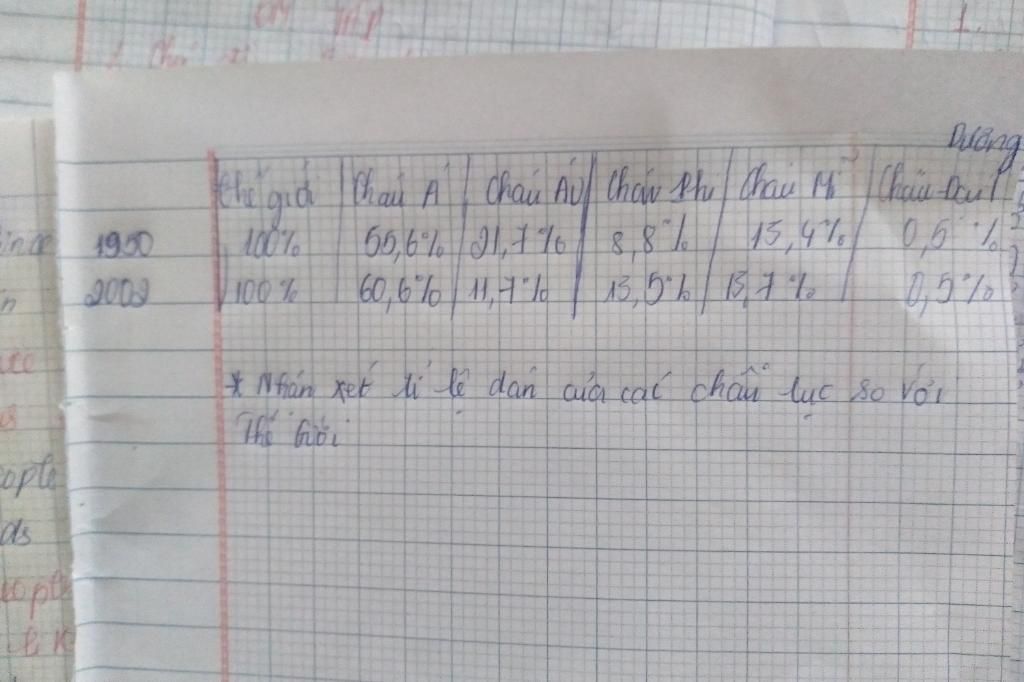 Dương
Thế giới Châu Á Châu Âu Châu Phi Châu Mĩ Châu Đại
1950 100% 55,6% 21,7% 8,8% 15,4% 0,5%
2002 100% 60,6% 11,7% 13,5% 13,7% 0,5%
* Nhận xét tỉ lệ dân của các châu lục so với
Thế Giới
ople
ds